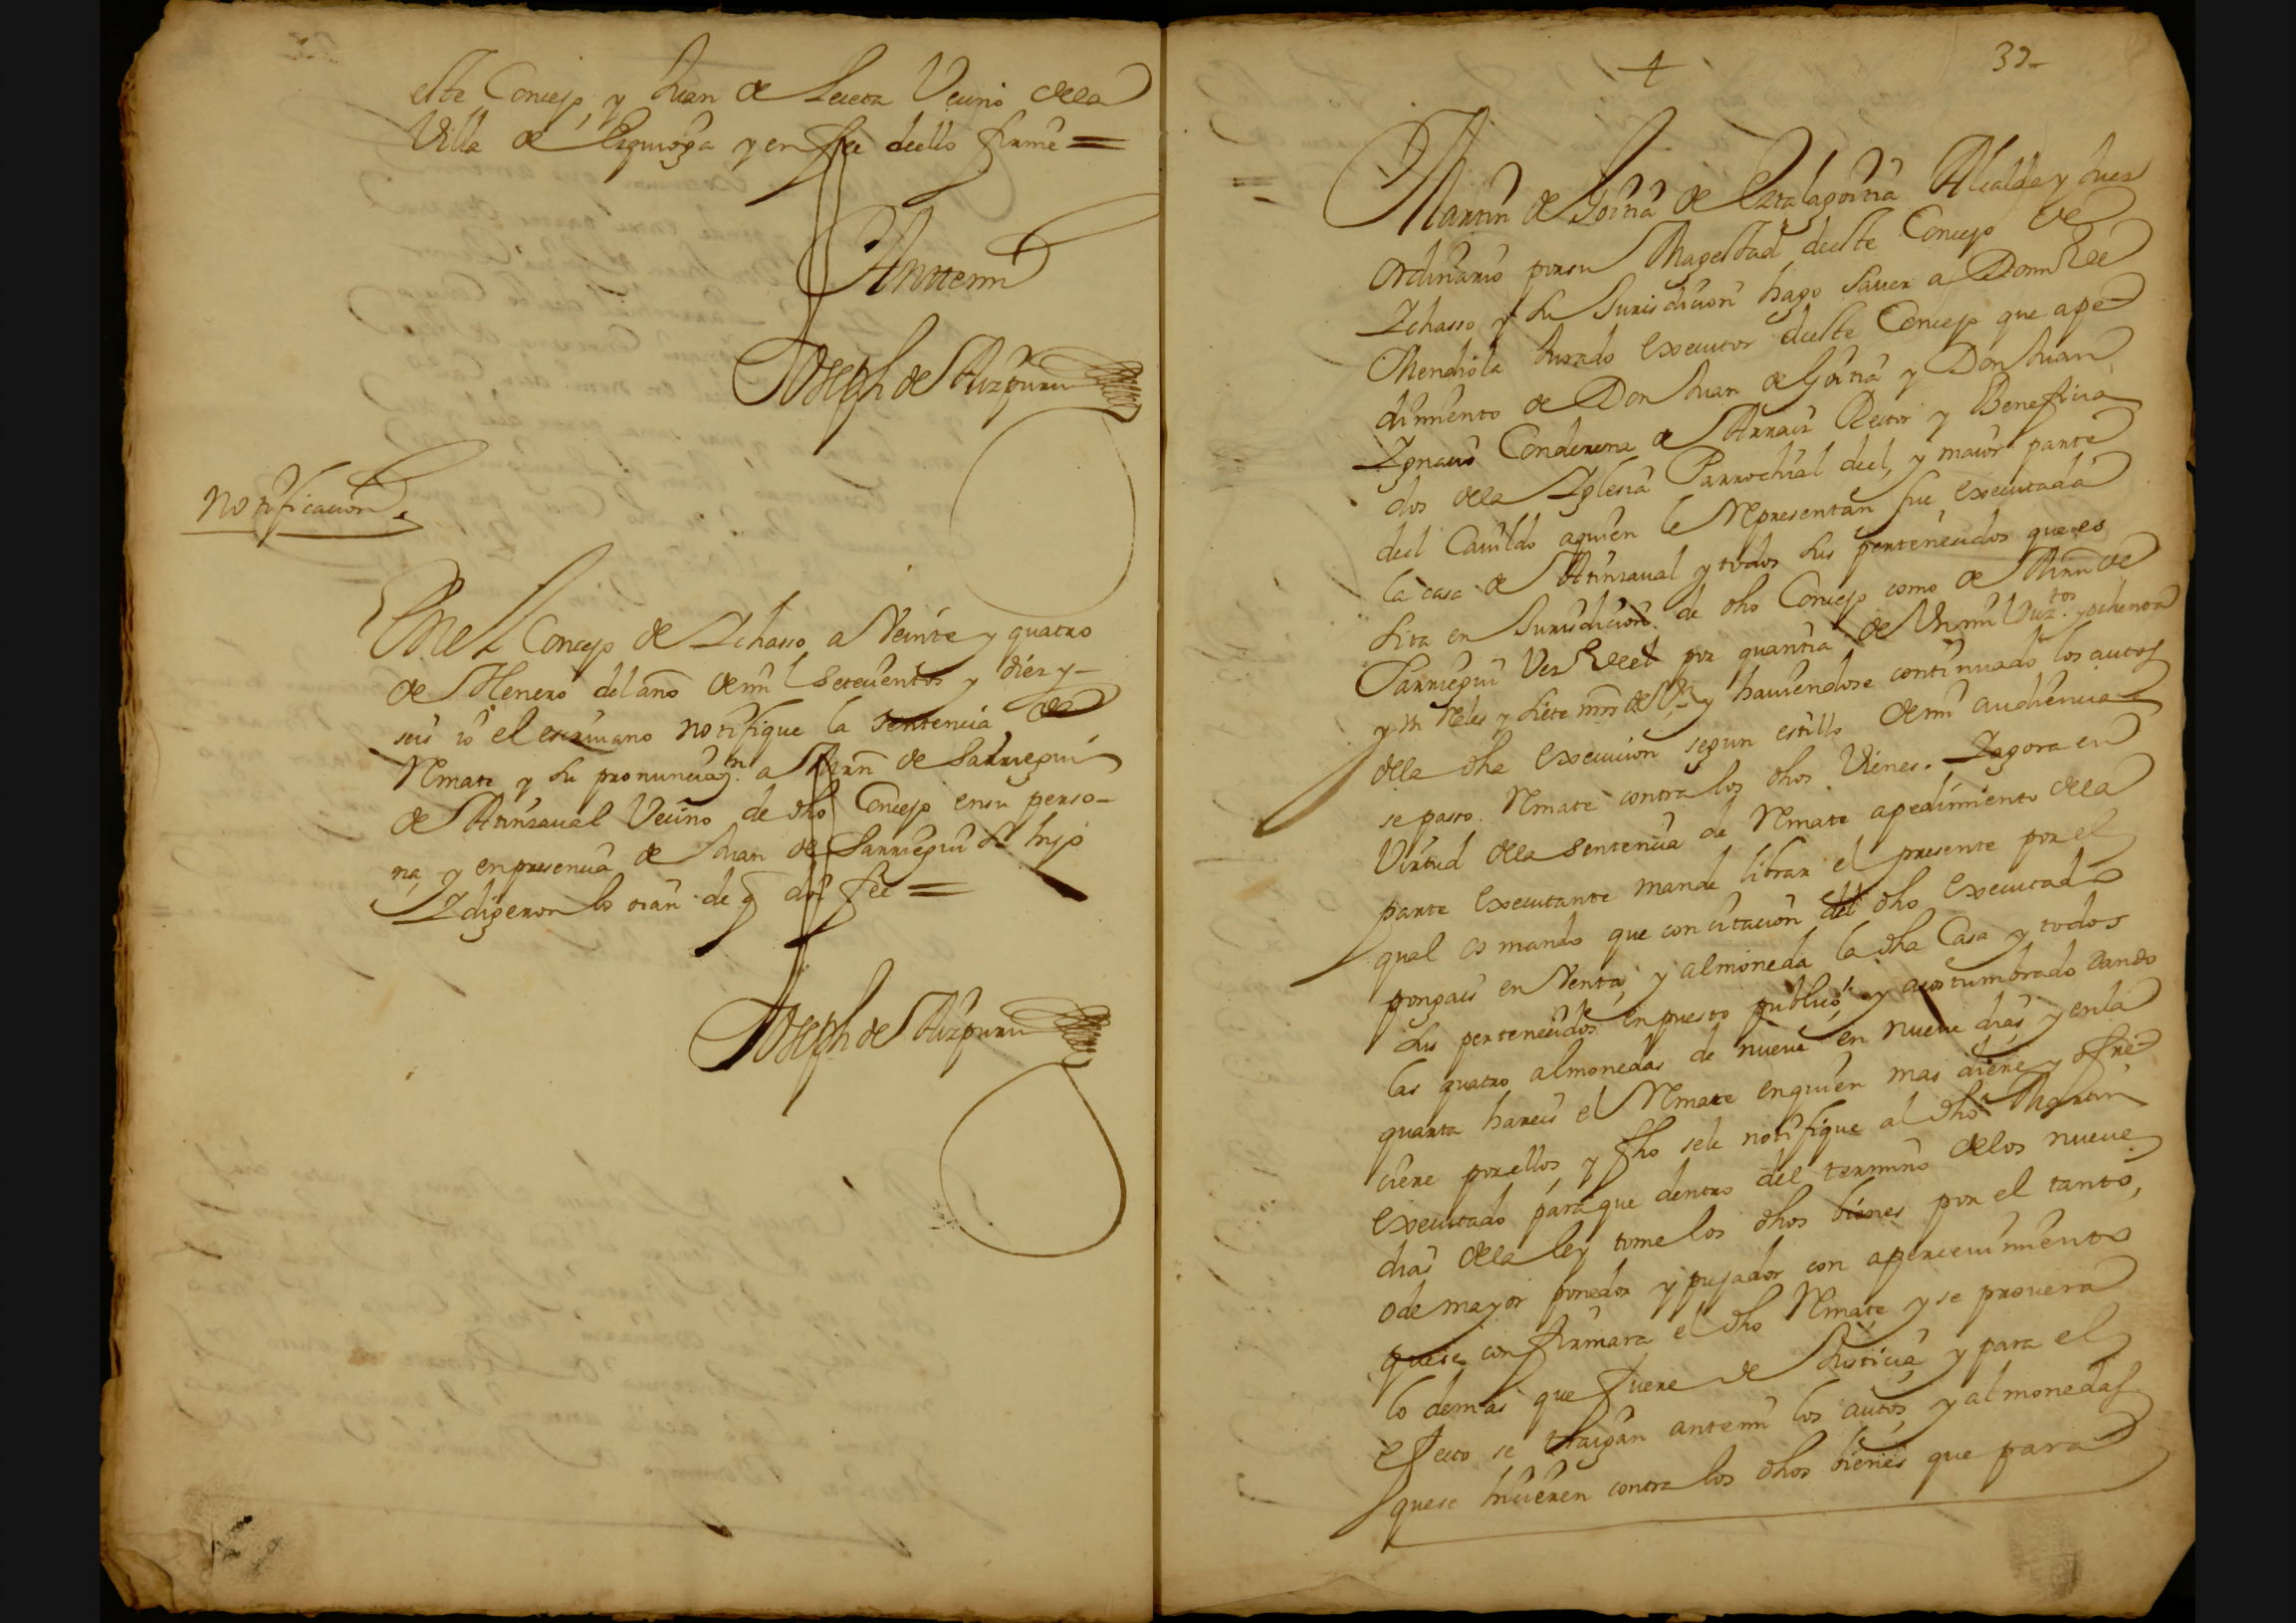 este Concejo, y Juan de Leceta Vecino dela
Villa de Ezquioga y en fee dello firme =
Antemi
Joseph de Aizpuru
Notificacion.
Enel Concejo de Ichasso, a Veinte y quatro
de Henero del año demil Setecientos y diez y-
seis io el escriuano notifique la sentencia de
Remate y su pronunciaon. a Mrn de Sarriegui
de Atinsaual Vecino de dho Concejo ensu perso-
na, y enpresencia de Juan de Sarriegui su hijo
Y digeron lo oian de q doi fee =
Joseph de Aizpuru
+
32-
Martin de Goitia de Ezalagoitia Alcalde y Juez
Ordinario porsu Magestad deeste Concejo de
Ichasso y su Jurisdicion hago sauer a Domil de
Mendiola Jurado executor deeste Concejo que ape
dimiento de Don Juan de Goitia y Don Juan
Ignacio Conderena de Arraiz Retor y Beneficia
dos dela Iglesia Parrochial deel, y maior parte
deel Cauildo aquien le Representan fue executada
la casa de Atinsaual y todos sus pertenecidos que es
sita en Jurisdicion de dho Concejo como de Mrn de
Sarriegui por quantia de Un mil Duztos. y ochenta
y un Reles y siete mrs de y hauiendose continuado los autos
dela dha execucion segun estillo demi audiencia
se passo Remate contra los dhos Vienes. Iagora en
Virtud dela sentencia de Remate apedimiento dela
parte executante mande librar el presente por el
qual os mando que con citacion del dho executado
pongais en Venta y almoneda la dha Casa y todos
sus pertenecidos en puesto publico, y acostumbrado dando
las quatro almonedas de nueue en nueue dias y enla
quarta hareis el Remate enquien mas diere y ofre
ciere porellos, y fho sele notifique al dho Martin
executado para que dentro del termino delos nueue
dias dela ley tome los dhos bienes por el tanto,
o de mayor ponedor y pujador con apercevimiento
quese confirmara el dho Remate y se prouera
lo demas que fuere de Justicia y para el
efecto se traigan antemi los autos y almonedas
quese hicieren contra los dhos bienes que para